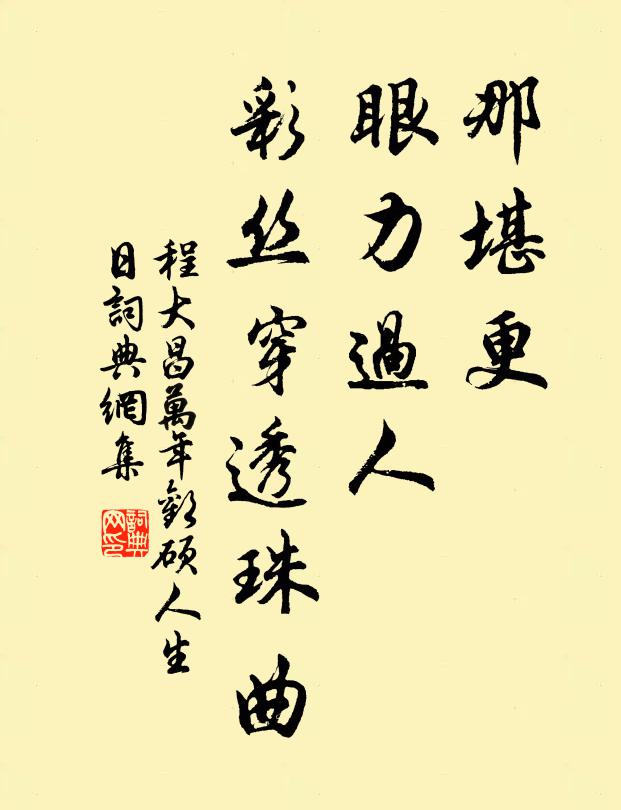 那堪更
眼力過人
彩丝穿透珠曲
程大昌萬年歡碩人生
日詞典網集
詞典
网印